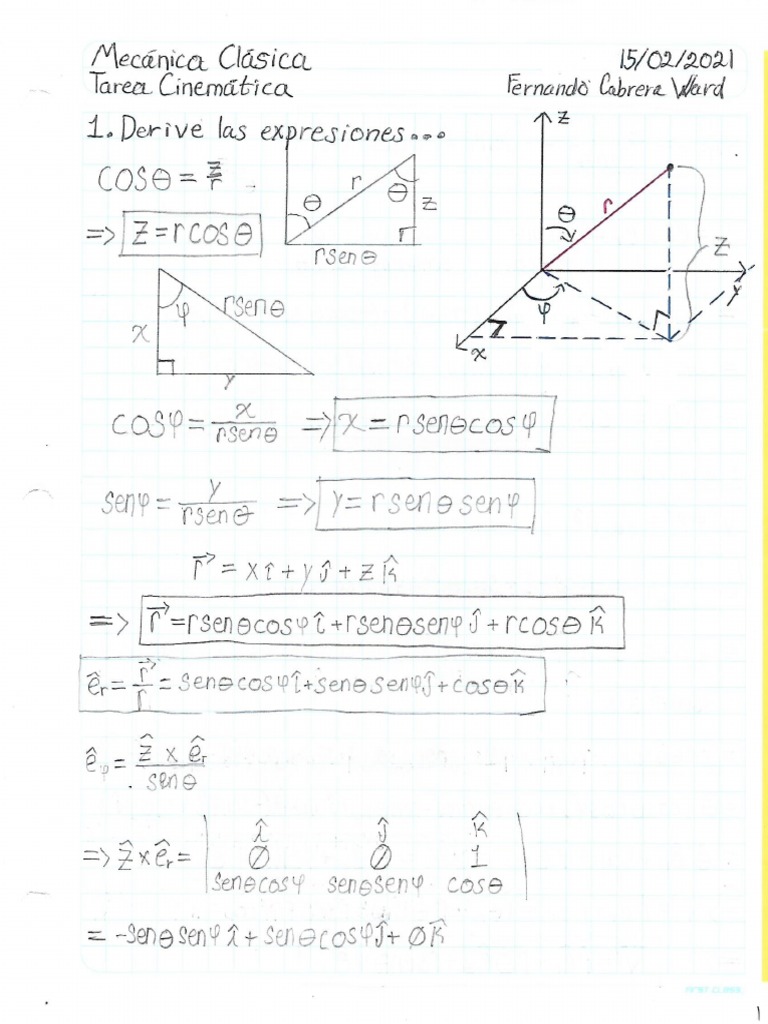 Mecánica Clásica 15/02/2021
Tarea Cinemática Fernando Cabrera Ward
1. Derive las expresiones...
cosθ = z/r
=> z = r cosθ
θ r θ z
r senθ
z
θ r
z
φ
x y
φ r senθ
x
y
cosφ = x/(r senθ) => x = r senθ cosφ
senφ = y/(r senθ) => y = r senθ senφ
r⃗ = x î + y ĵ + z k̂
=> r⃗ = r senθ cosφ î + r senθ senφ ĵ + r cosθ k̂
ê_r = r⃗/r = senθ cosφ î + senθ senφ ĵ + cosθ k̂
ê_φ = (ẑ × ê_r)/senθ
î ĵ k̂
=> ẑ × ê_r = | 0 0 1 |
senθcosφ senθsenφ cosθ
= -senθ senφ î + senθ cosφ ĵ + 0 k̂
1